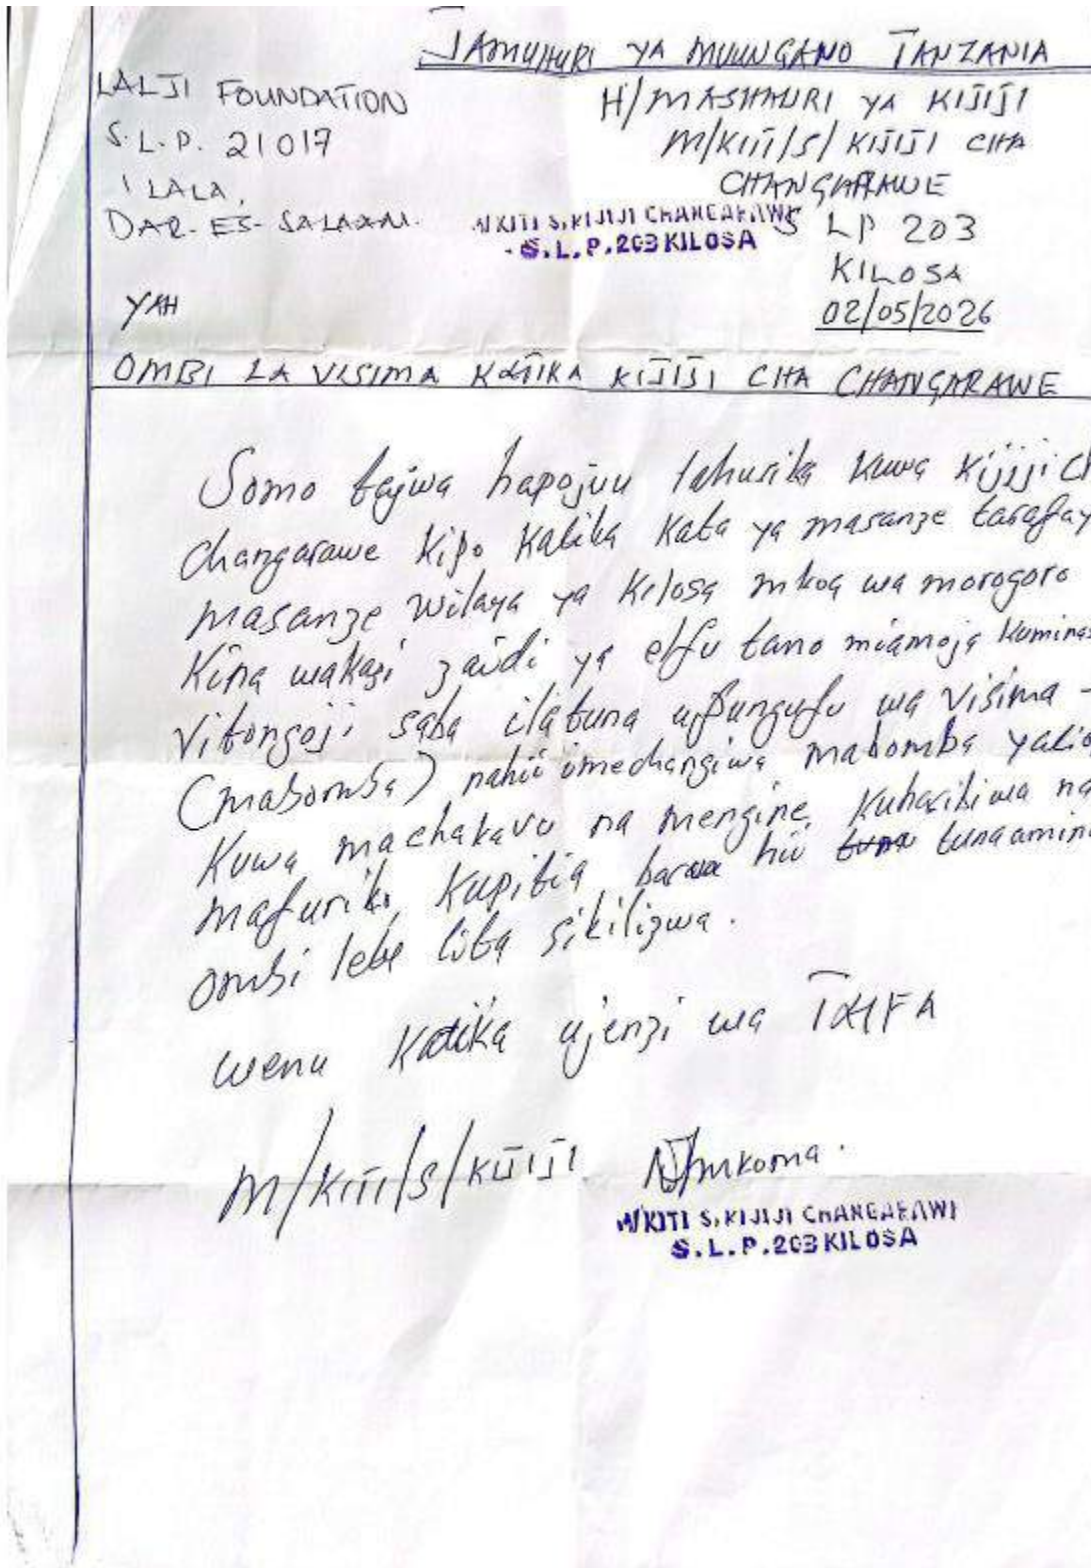 JAMUHURI YA MUUNGANO TANZANIA
LALJI FOUNDATION
S.L.P. 21017
ILALA,
DAR-ES-SALAAM.
H/MASHAURI YA KIJIJI
M/KITI/S/KIJIJI CHA
CHANGARAWE
S LP 203
KILOSA
02/05/2026
M/KITI S, KIJIJI CHANGARAWE
S.L.P. 203 KILOSA
YAH
OMBI LA VISIMA KATIKA KIJIJI CHA CHANGARAWE
Somo tajwa hapojuu lahusika kuwa kijiji ch
changarawe kipo katika kata ya masanze tarafa y
masanze wilaya ya kilosa mkoa wa morogoro
kina wakazi zaidi ya elfu tano miamoja kumina
vitongoji saba ila tuna upungufu wa visima -
(mabomba) nahii imechangiwa mabomba yalio
kuwa machakavu na mengine kuharibiwa na
mafuriko, kupitia barua hii tuna tunaamin
ombi letu lita sikilizwa.
wenu katika ujenzi wa TAIFA
M/KITI/S/KIJIJI
Mkoma.
M/KITI S, KIJIJI CHANGARAWE
S.L.P. 203 KILOSA